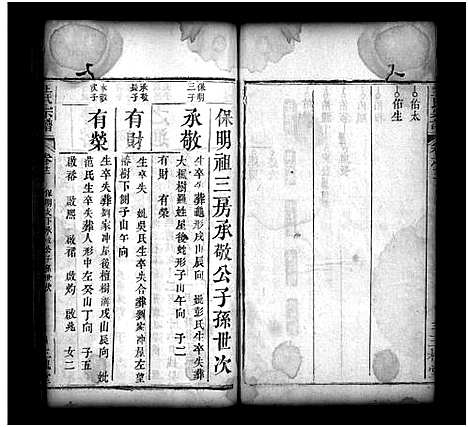 佑太
佑生
保明祖三房承敬公子孫世次
保明
三子
承敬
生卒失葬龜形戌山辰向 娶彭氏生卒失葬
大楓樹羅姓屋後蛇形子山午向 子二
有財 有榮
承敬
長子
有財
生卒失 娶吳氏生卒失合葬劉家冲屋左望
樹下劄子山午向
承敬
次子
有榮
生卒失葬劉家冲屋後檀樹 戌山辰向 娶
范氏生卒失葬人形中左癸山丁向 子五
啟 啟熙 啟 啟灼 啟兆 女二
氏宗譜
保明支下承敬公子孫世次